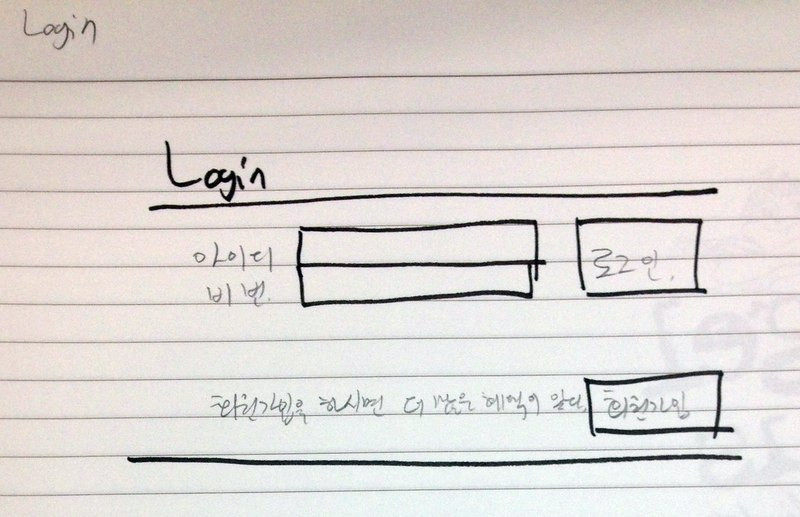 Login
Login
아이디
로그인.
비번.
회원가입을 하시면 더 많은 혜택이 있다. 회원가입